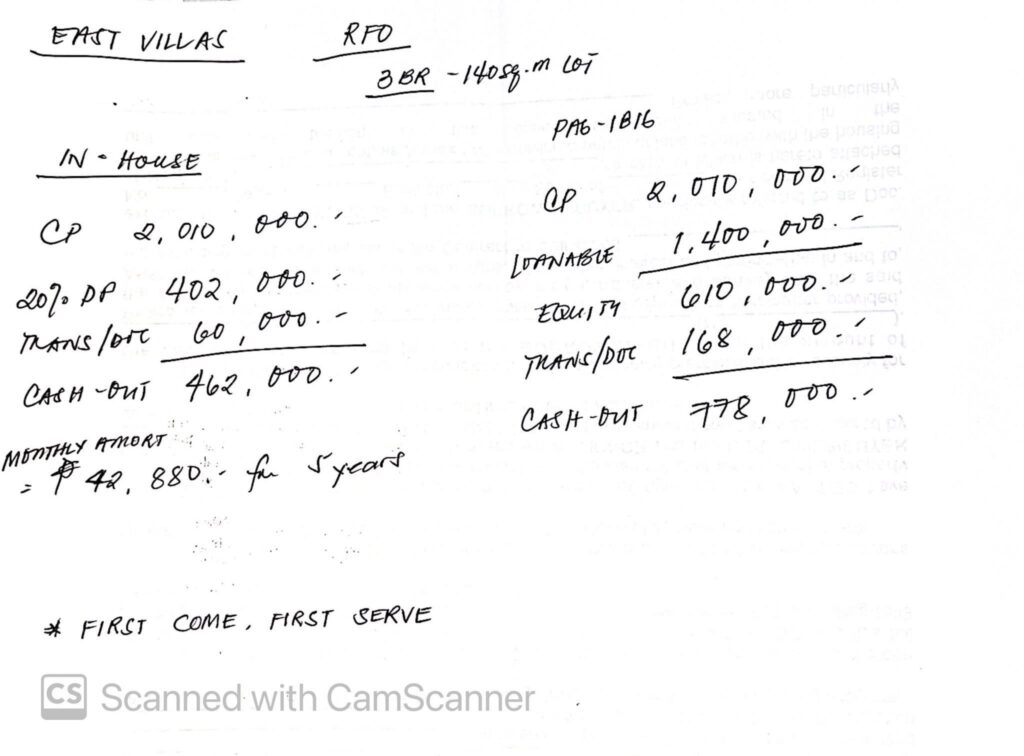 EAST VILLAS RFO
3 BR - 140 sq.m LOT
IN - HOUSE
CP 2,010,000.-
20% DP 402,000.
TRANS/DOC 60,000.-
CASH-OUT 462,000.-
MONTHLY AMORT
= ₱ 42,880.- for 5 years
PAG-IBIG
CP 2,010,000.-
LOANABLE 1,400,000.-
EQUITY 610,000.-
TRANS/DOC 168,000.-
CASH-OUT 778,000.-
* FIRST COME, FIRST SERVE
CS Scanned with CamScanner